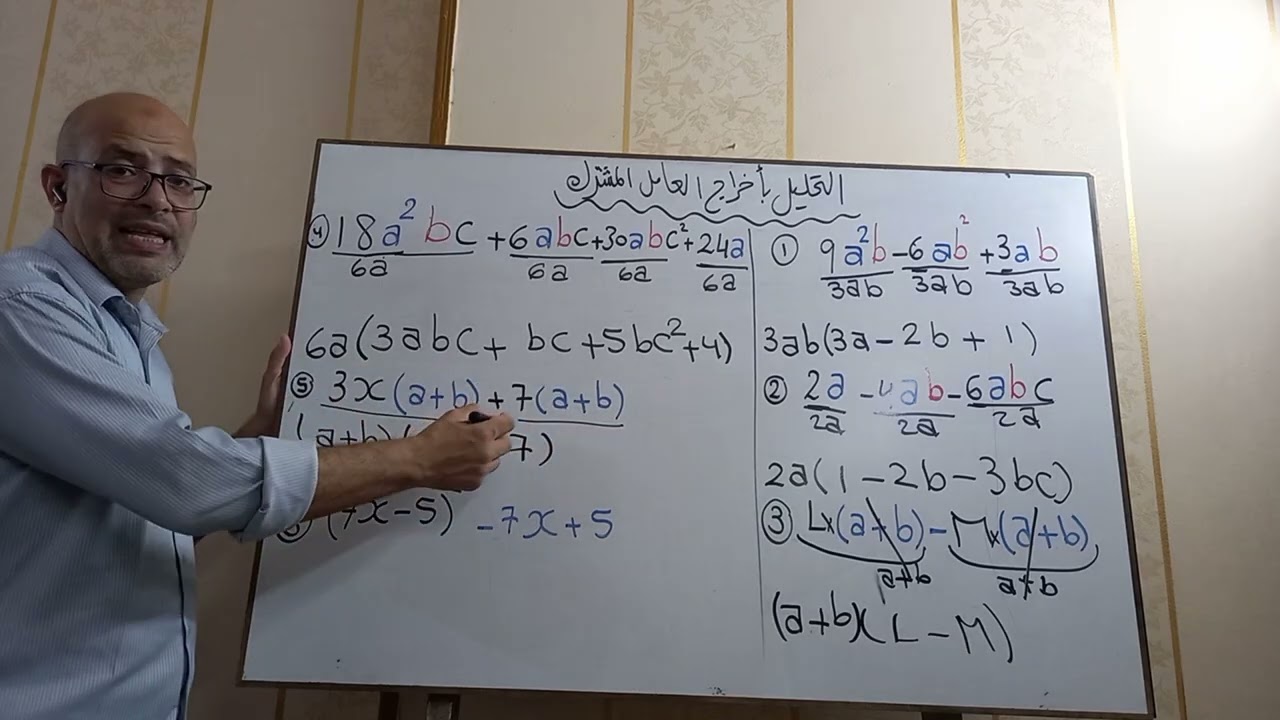 التحليل بأخراج العامل المشترك
① 9a²b - 6ab² + 3ab
3ab 3ab 3ab
3ab(3a - 2b + 1)
② 2a - 4ab - 6abc
2a 2a 2a
2a(1 - 2b - 3bc)
③ L×(a+b) - M×(a+b)
a+b a+b
(a+b)×(L - M)
④ 18a²bc + 6abc + 30abc² + 24a
6a 6a 6a 6a
6a(3abc + bc + 5bc² + 4)
⑤ 3x(a+b) + 7(a+b)
(a+b)( 7)
(7x - 5) - 7x + 5